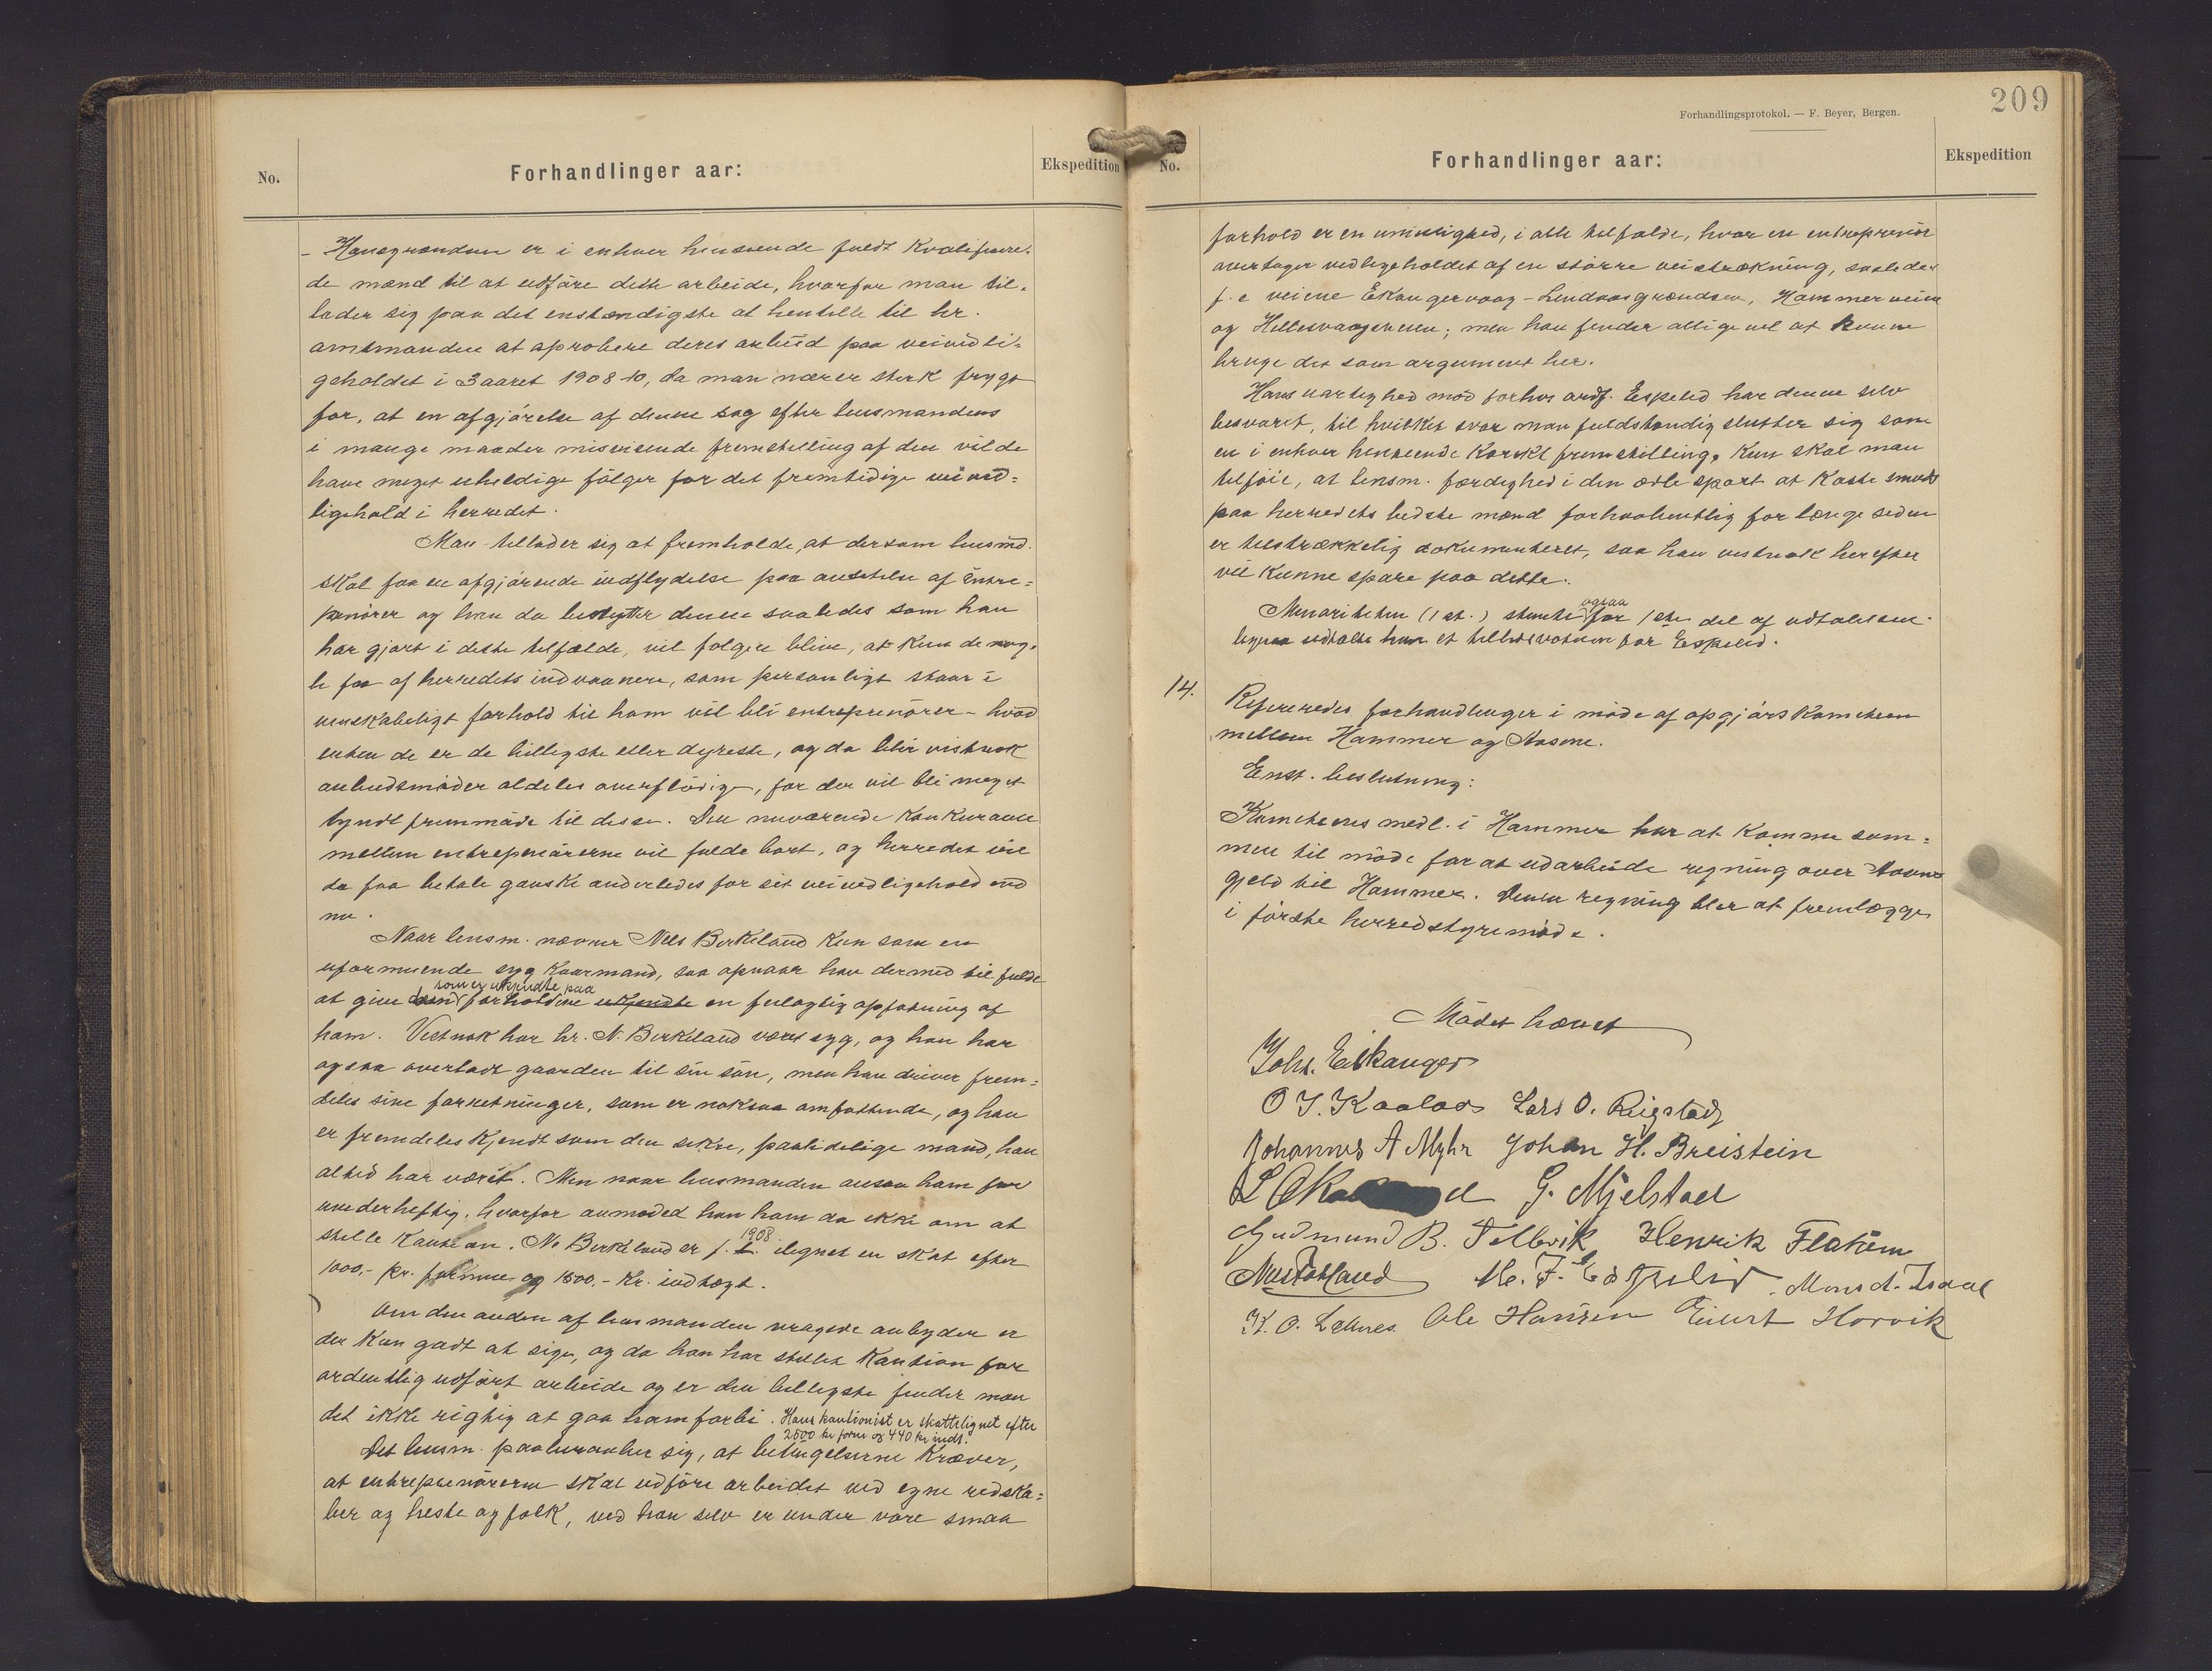 No.
Forhandlinger aar:
Ekspedition
- Hausgrændsen er i enhver henseende fuldt kvalifisere-
de mænd til at udføre dette arbeide, hvorfor man til-
lader sig paa det enstændigste at henstille til hr.
amtmanden at aprobere deres anbud paa veividli-
geholdet i 3aaret 1908-10, da man nærer sterk frygt
for, at en afgjørelse af denne sag efter lensmandens
i mange maader misvisende fremstilling af den vilde
have meget uheldige følger for det fremtidige veived-
ligehold i herredet.
Man tillader sig at fremholde, at dersom lensmd.
skal faa en afgjørende indflydelse paa ansettelse af entre-
prenører og han da benytter denne saaledes som han
har gjort i dette tilfælde, vil følgen blive, at kun de nog-
le faa af herredets indvaanere, som personligt staar i
venskabeligt forhold til ham vil bli entreprenører - hvad
enten de er de billigste eller dyreste, og da blir vistnok
anbudsmøder aldeles overflødige, for der vil bli meget
tyndt fremmøde til disse. Den nuværende konkurance
mellem entreprenørerne vil falde bort, og herredet vil
da faa betale ganske anderledes for sit veivedligehold end
nu.
Naar lensm. nævner Nils Birkeland kun som en
uformuende syg kaarmand, saa opnaar han dermed til fulde
som er ukjendte paa
at give dem forholdene ukjendte en feilagtig opfatning af
ham. Vistnok har hr. N. Birkeland været syg, og han har
ogsaa overladt gaarden til sin søn, men han driver frem-
deles sine forretninger, som er noksaa omfattende, og han
er fremdeles kjendt som den sikre, paalidelige mand, han
altid har været. Men naar lensmanden ansaa ham for
uvederheftig, hvorfor anmoded han ham da ikke om at
stille kaution. N. Birkeland er f. 1908 ilignet en skat efter
1000,- kr. formue og 1500.- kr. indtægt.
Om den anden af lensmanden vragede anbyder er
der kun godt at sige, og da han har stillet kaution for
ordentlig udført arbeide og er den billigste finder man
det ikke rigtig at gaa ham forbi. Hans kautionist er skattelignet efter
2500 kr form og 440 kr indt.
Det lensm. paaberaaber sig, at betingelserne kræver,
at entreprenørerne skal udføre arbeidet ved egne redska-
ber og heste og folk, ved han selv er under vore smaa
209
Forhandlingsprotokol. — F. Beyer, Bergen.
No.
Forhandlinger aar:
Ekspedition
forhold er en umulighed, i alle tilfælde, hvor en entreprenør
overtager vedligeholdet af en større veistrækning, saaledes
f. e veiene Eikangervaag - Lindaasgrændsen, Hammerveien
og Hellesvaagsveien; men han finder alligevel at kunne
bruge det som argument her.
Hans uartighed mod forhv ordf. Espelid har denne selv
besvaret, til hvilket svar man fuldstændig slutter sig som
en i enhver henseende korekt fremstilling. Kun skal man
tilføie, at lensm. færdighed i den ædle sport at kaste smuds
paa herredets bedste mænd forhaabentlig for længe siden
er tilstrækkelig dokumenteret, saa han vistnok herefter
vil kunne spare paa dette.
ogsaa
Minoriteten (1 st.) stemte for 1ste del af udtalelsen.
ligesaa udtalte han et tillidsvotum for Espelid.
14.
Refereredes forhandlinger i møde af opgjørskomiteen
mellem Hammer og Aasene.
Enst. beslutning:
Komiteens medl. i Hammer har at komme sam-
men til møde for at udarbeide regning over Aasenes
gjeld til Hammer. Denne regning blir at fremlægge
i første herredstyremøde.
Mødet hævet
Johs. Eikanger
O J. Kaalaas Lars O. Rigstad
Johannes A Myhr Johan H. Breistein
G. Mjelstad
Gudmund B. Tellevik Henrik Flatøen
Nils Fosland M. J. Espelid Mons A. Isdal
K. O. Lætnes. Ole Hansen Eilert Horvik